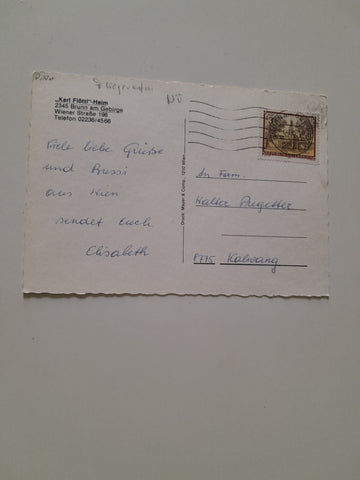 NÖ
„Karl Flöttl"-Heim
2345 Brunn am Gebirge
Wiener Straße 196
Telefon 02236/4566
Viele liebe Grüße
und Bussi
aus Wien
sendet Euch
Elisabeth
Druck: Mayer & Comp., 1210 Wien
An Fam.
Walter
8775 Kalwang